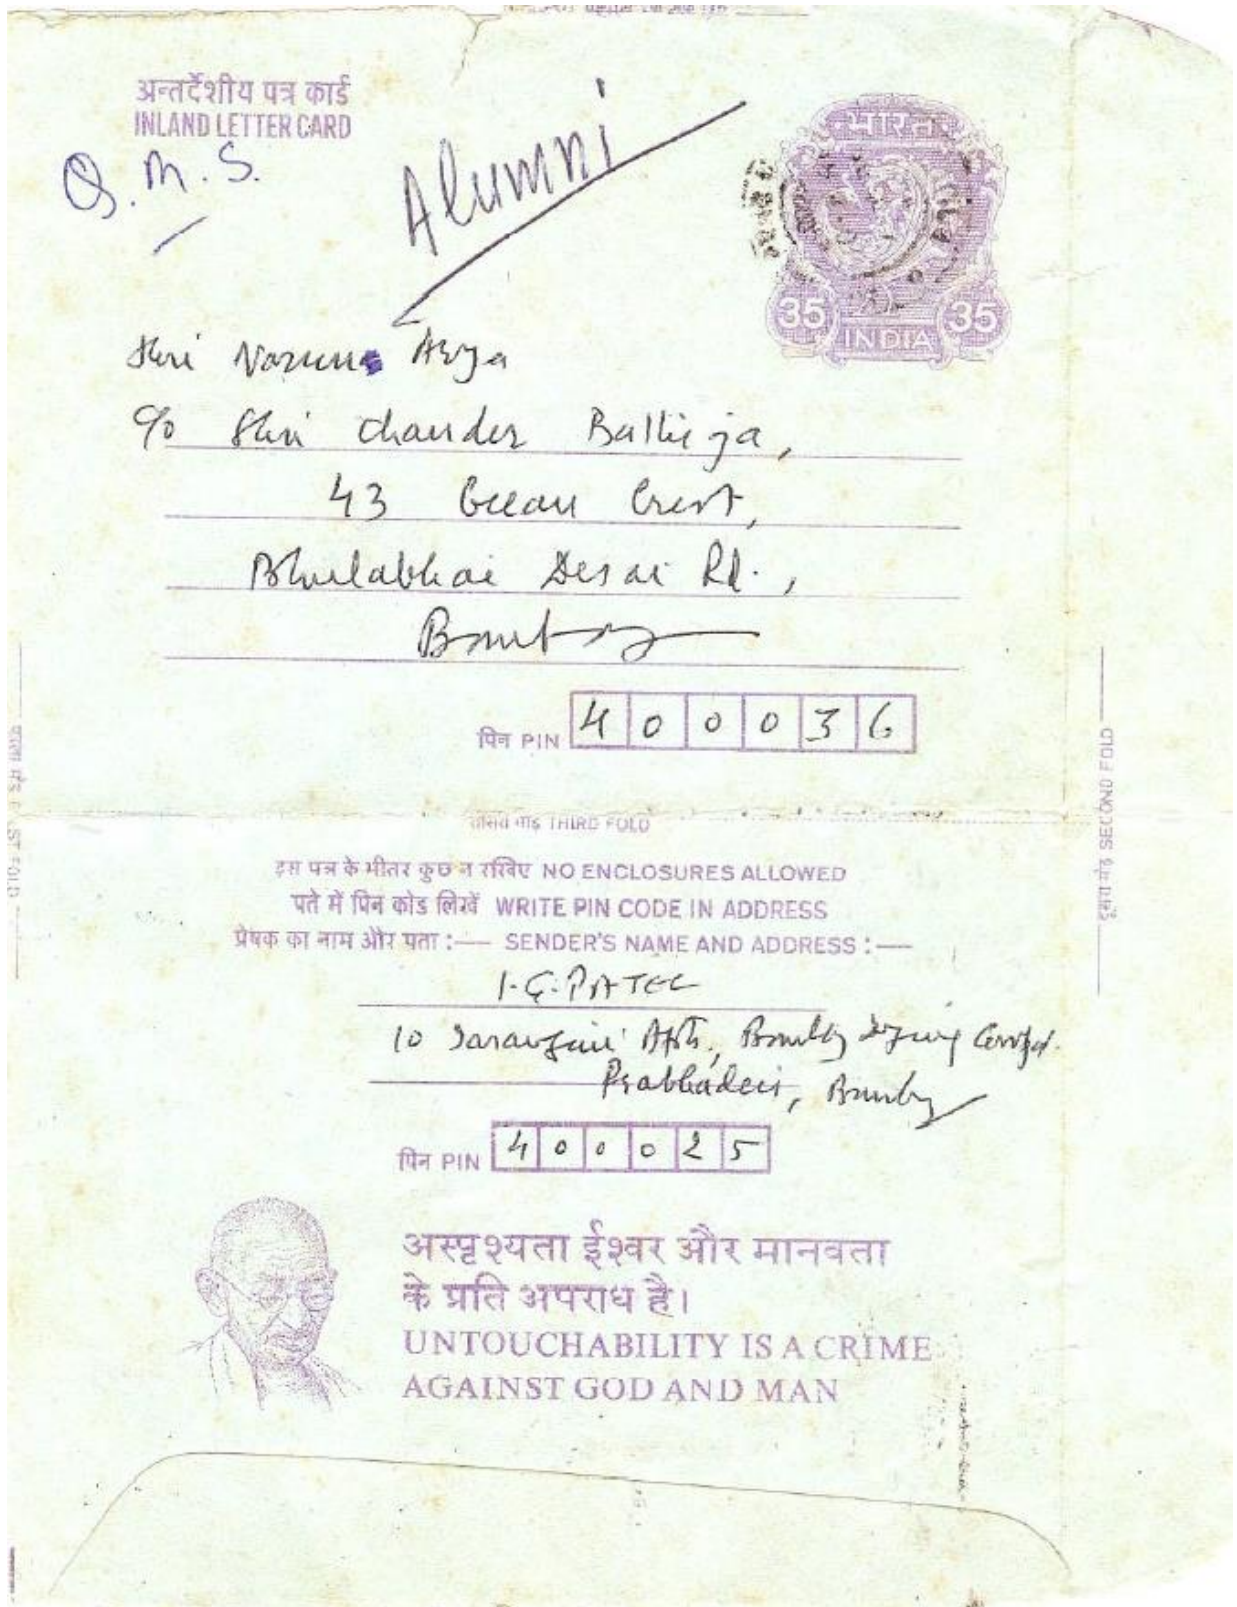 अन्तर्देशीय पत्र कार्ड
INLAND LETTER CARD
Q. M. S.
Alumni
भारत
35 35
INDIA
Shri Varun Arya
c/o Shri Chander Balleja,
43 Ocean Crest,
Bhulabhai Desai Rd.,
Bombay
पिन PIN 400036
तीसरा मोड़ THIRD FOLD
दूसरा मोड़ SECOND FOLD
इस पत्र के भीतर कुछ न रखिए NO ENCLOSURES ALLOWED
पते में पिन कोड लिखें WRITE PIN CODE IN ADDRESS
प्रेषक का नाम और पता :— SENDER'S NAME AND ADDRESS :—
I.G. PATEL
10 Apts., Bombay Dyeing Compd.
Prabhadevi, Bombay
पिन PIN 400025
अस्पृश्यता ईश्वर और मानवता
के प्रति अपराध है।
UNTOUCHABILITY IS A CRIME
AGAINST GOD AND MAN